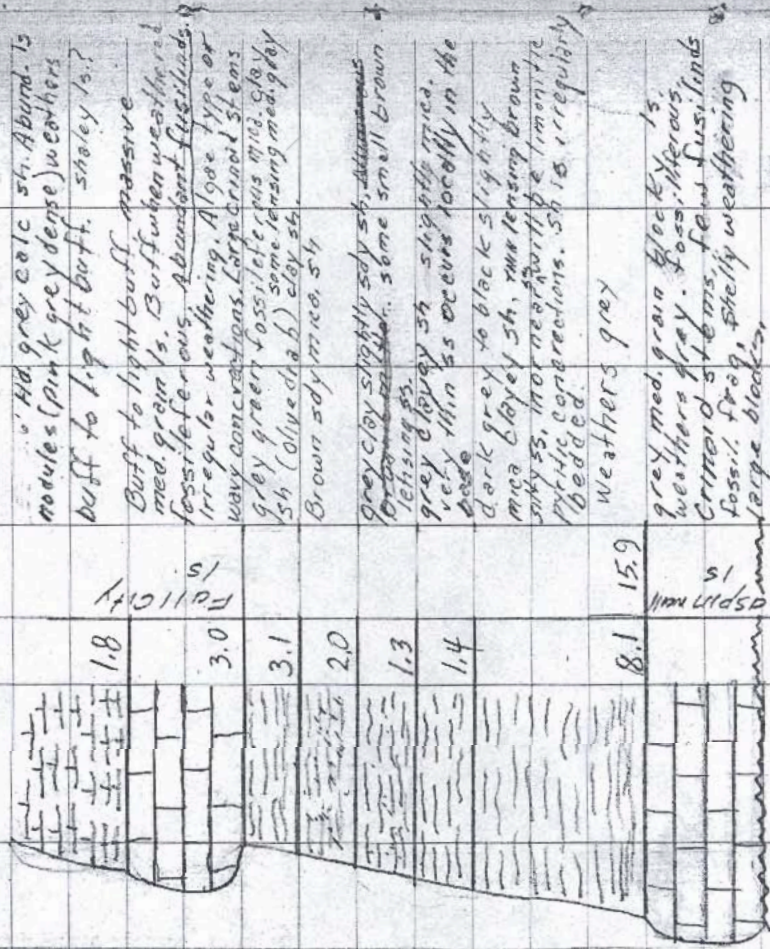 Hd. grey calc sh. Abund. ls
nodules (pink grey dense) weathers
buff to light buff. shaley ls.?
Buff to light buff massive
med. grain ls. Buff when weathered
fossileferous. Abundant fusilinds.
Irregular weathering. Algae type or
wavy concrections. Large crinoid stems
grey green fossileferous mica. clay
sh (olive drab) some lensing med. gray
clay sh.
Brown sdy mica. sh
grey clay slightly sdy sh.
some small brown
lensing ss.
grey clayey sh slightly mica.
very thin ss occurs locally in the
base
dark grey to black slightly
mica clayey sh, thin lensing brown
silty ss. mor near ss with be limonitic
pyritic concrections. Sh is irregularly
bedded.
Weathers grey
grey med. grain blocky ls.
weathers grey. fossiliferous,
Crinoid stems, few fusilinds
fossil frag, Shelly weathering
large blocks.
Fall City
ls
15.9
aspinwall
ls
1.8
3.0
3.1
2.0
1.3
1.4
8.1